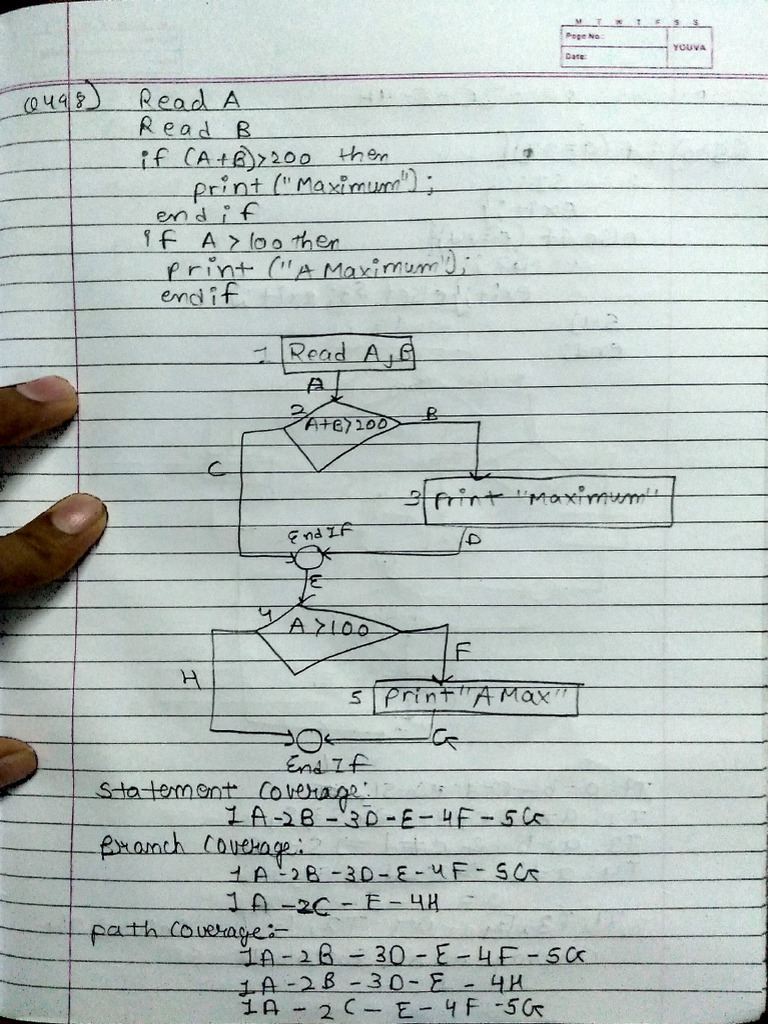 M T W T F S S
Page No.:
YOUVA
Date:
Q498) Read A
Read B
if (A+B)>200 then
print ("Maximum");
endif
if A >100 then
print ("A Maximum");
endif
1 Read A,B
A
2 A+B>200 B
C
3 Print "Maximum"
End IF
D
E
4 A >100
F
H
5 Print "A Max"
G
End If
Statement Coverage:
1A-2B-3D-E-4F-5G
Branch Coverage:
1A-2B-3D-E-4F-5G
1A-2C-E-4H
path Coverage:-
1A-2B-3D-E-4F-5G
1A-2B-3D-E-4H
1A-2C-E-4F-5G